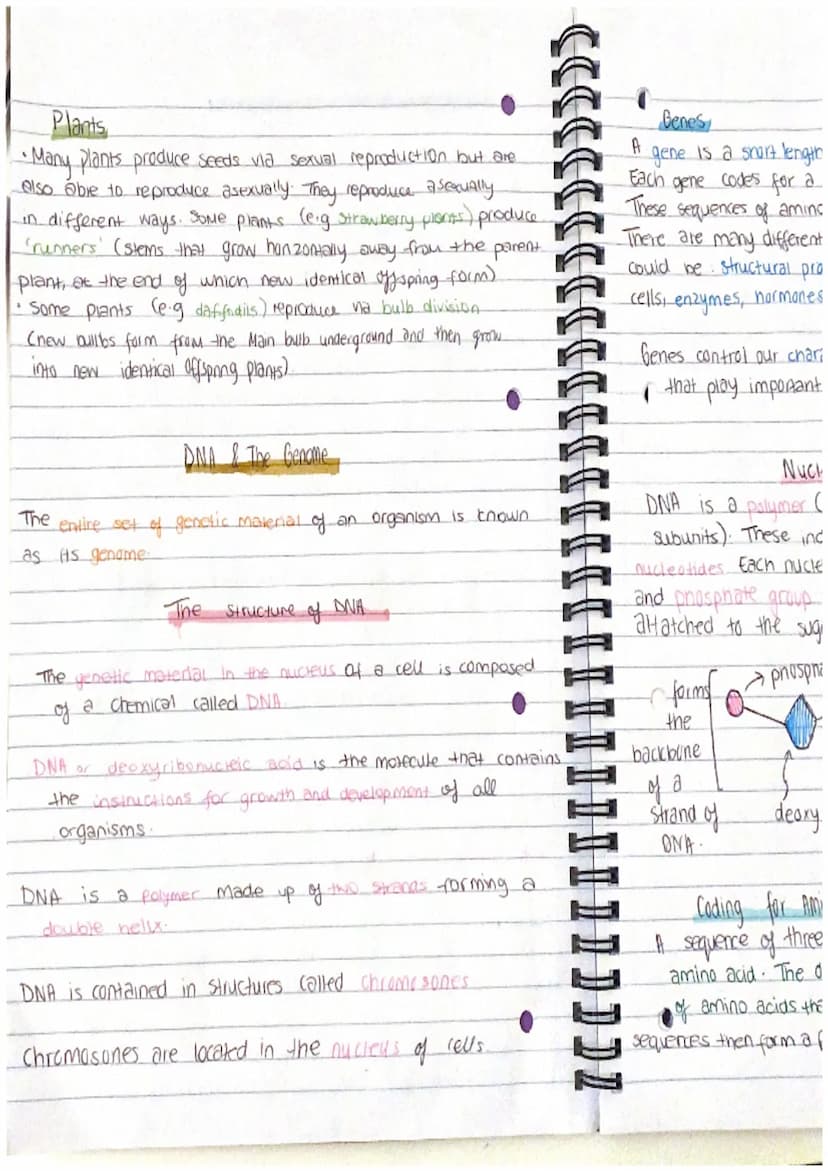 Plants
• Many plants produce seeds via sexual reproduction but are
also able to reproduce asexually. They reproduce asexually
in different ways. Some plants (e.g strawberry plants) produce
'runners' (stems that grow horizontally away from the parent
plant, at the end of which new identical offspring form)
• Some plants (e.g daffodils) reproduce via bulb division
(new bulbs form from the main bulb underground and then grow
into new identical offspring plants)
DNA & The Genome
The entire set of genetic material of an organism is known
as its genome.
The structure of DNA
The genetic material in the nucleus of a cell is composed
of a chemical called DNA.
DNA or deoxyribonucleic acid is the molecule that contains
the instructions for growth and development of all
organisms.
DNA is a polymer made up of two strands forming a
double helix.
DNA is contained in structures called chromosones
chromosones are located in the nucleus of cells
Genes
A gene is a short length
Each gene codes for a
These sequences of amino
There are many different
could be . structural pro
cells, enzymes, hormones
Genes control our chara
that play important
Nucl
DNA is a polymer (
subunits). These ind
nucleotides. Each nucle
and phosphate group
attatched to the sug
forms
the
backbone
of a
strand of
DNA.
phospha
deoxy
Coding for Ami
A sequence of three
amino acid. The o
of amino acids the
sequences then form a p